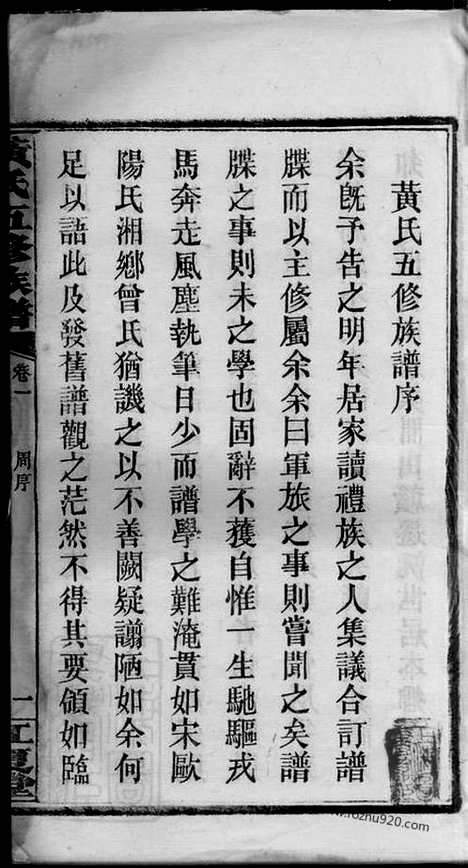 黃氏五修族譜序
余旣予告之明年居家讀禮族之人集議合訂譜
牒而以主修屬余余曰軍旅之事則嘗聞之矣譜
牒之事則未之學也固辭不獲自惟一生馳驅戎
馬奔走風塵執筆日少而譜學之難淹貫如宋歐
陽氏湘鄉曾氏猶譏之以不善闕疑謭陋如余何
足以語此及發舊譜觀之茫然不得其要領如臨
黃氏五修族譜
卷一
周序
一
江夏堂
www.fozhu920.com